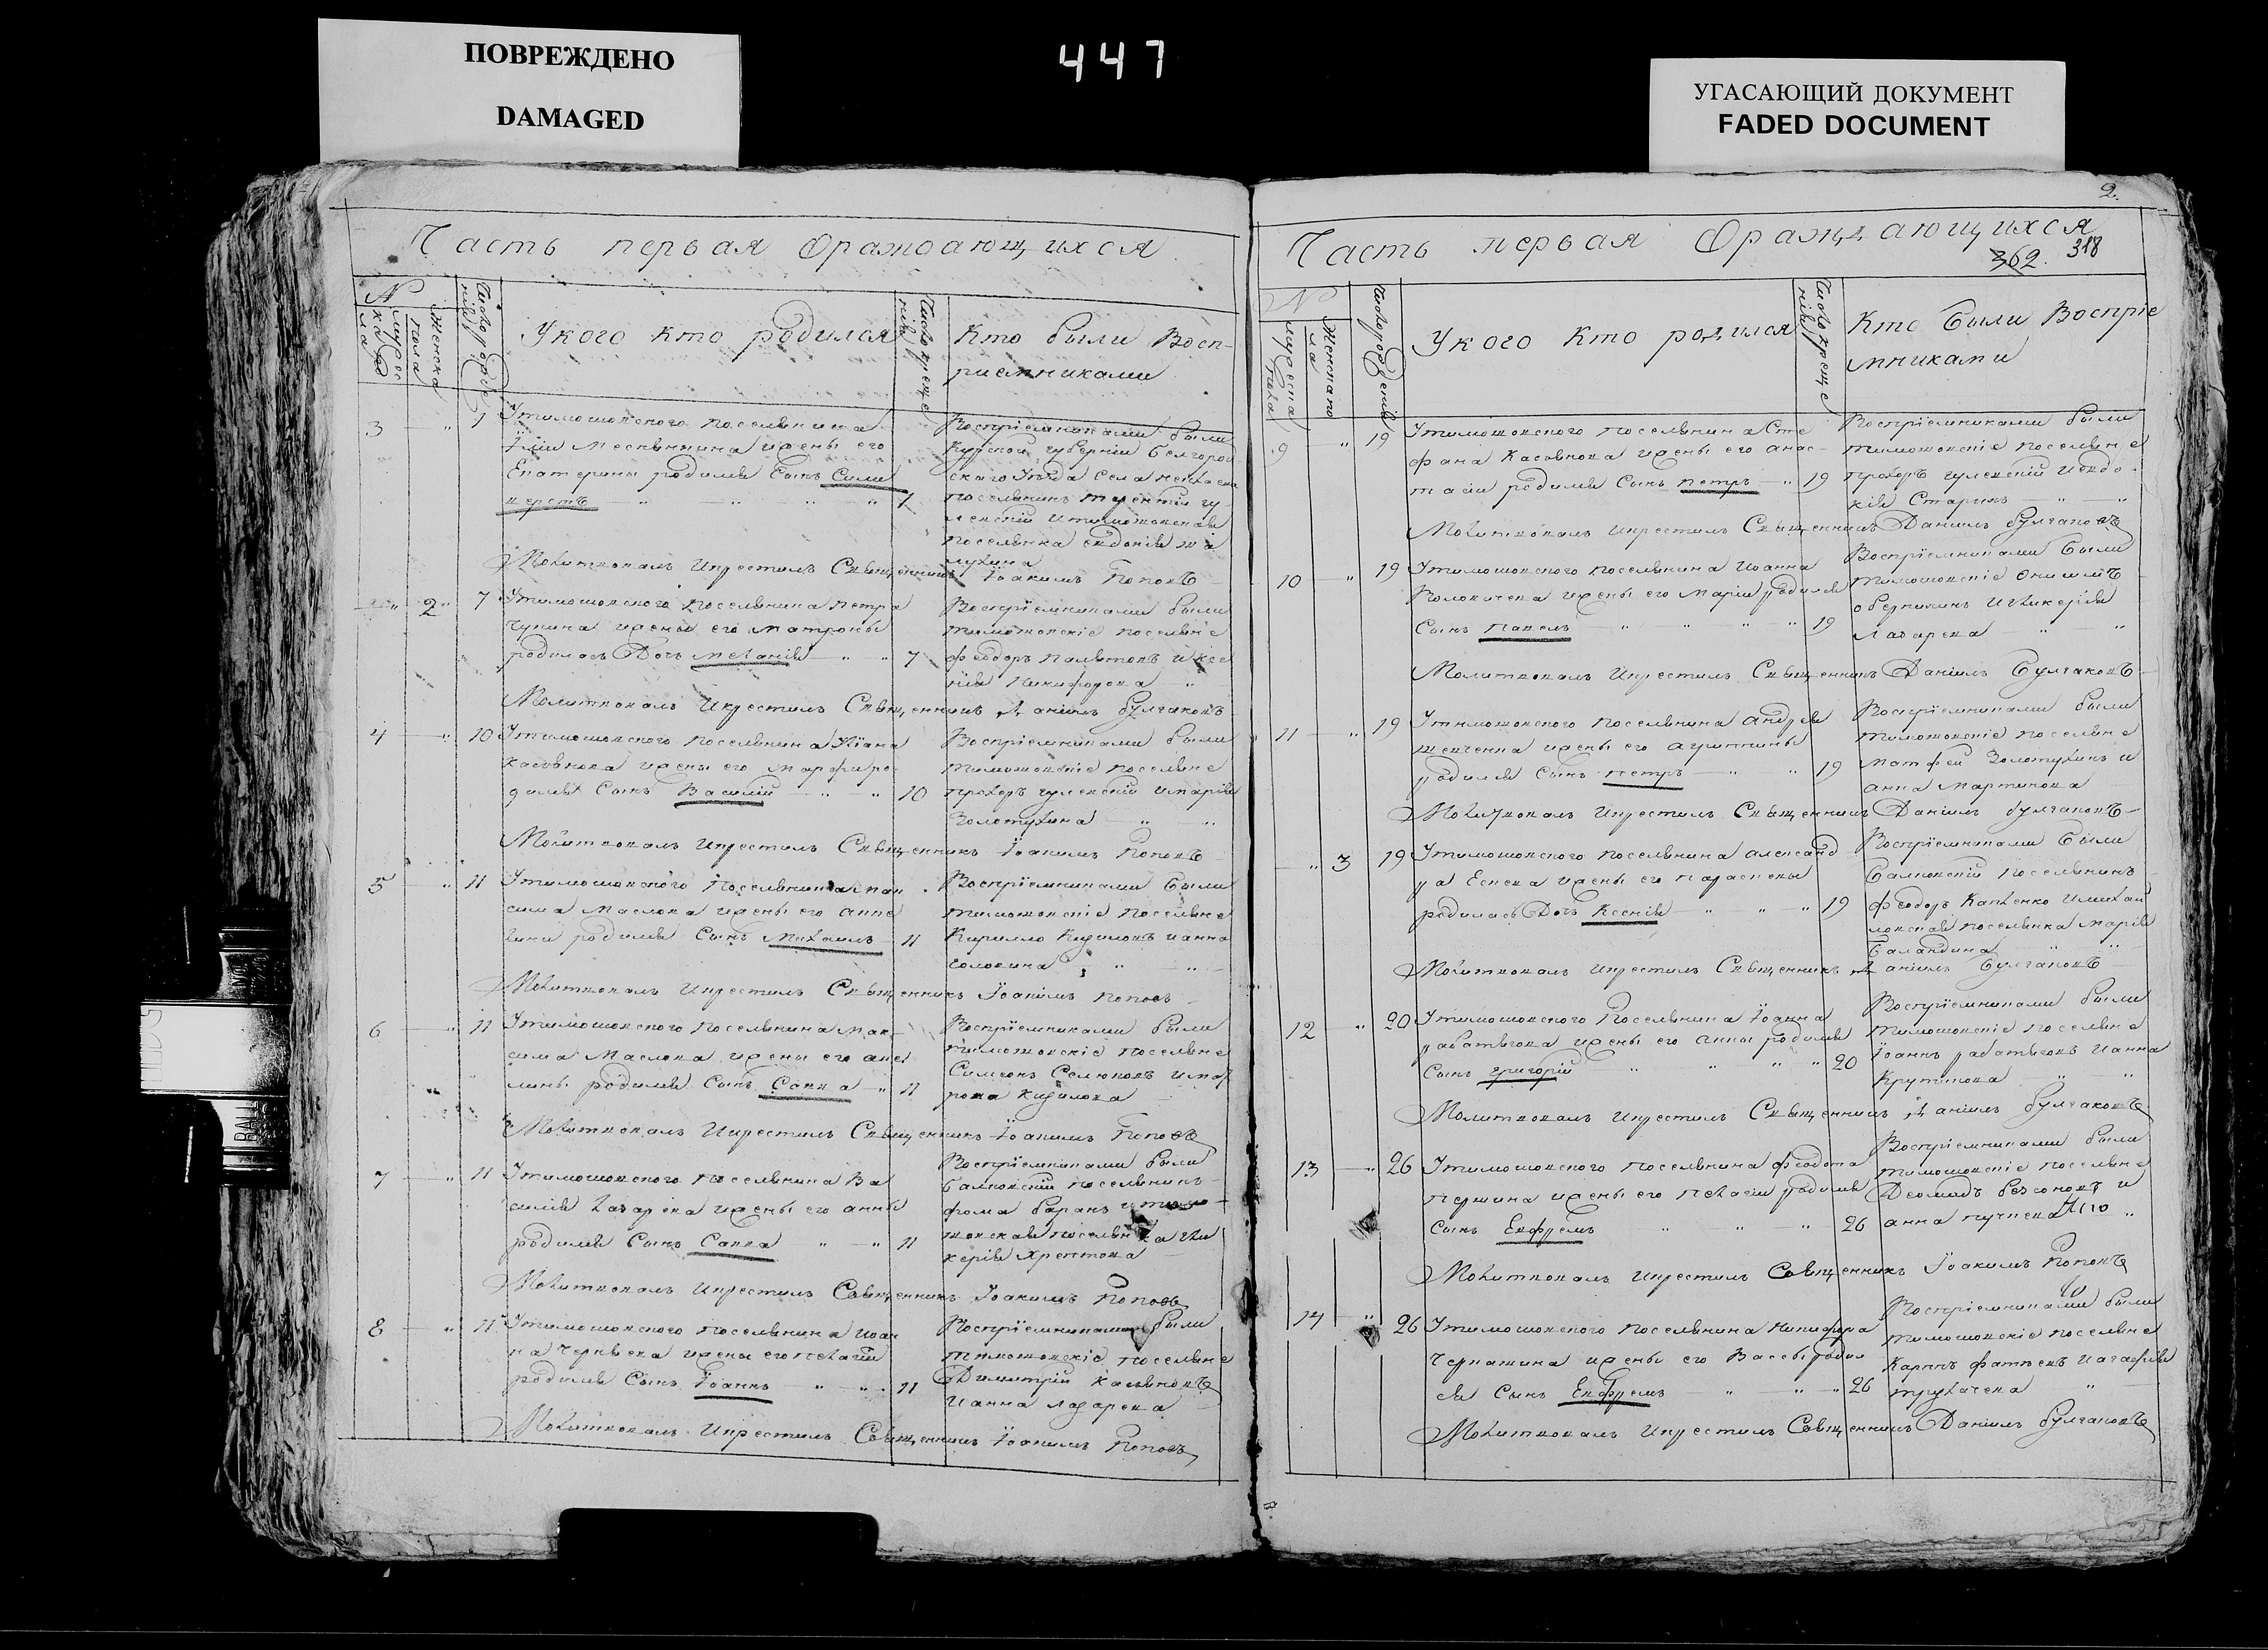 ПОВРЕЖДЕНО
DAMAGED
447
УГАСАЮЩИЙ ДОКУМЕНТ
FADED DOCUMENT
Часть первая Ораждающихся
N
Мужеска пола
Женска пола
Число рожде нія
У кого кто родился
Число креще нія
Кто были Восп-
риемниками
3 " 1 Утимошовского поселянина
жены его
Екатерины родился Сынъ Сили
верстъ " " " " 1
Воспріемниками были
Курской губерніи Белгород
скаго Уезда Села
поселянинъ терентій гу
левскій Итимошовская
поселянка евдокія
Молитвовалъ Икрестилъ Священникъ Іоакимъ Поповъ
" 2 7 Утимошовского поселянина петра
Чупина ижены его матроны
родилась Дочь меланія " " 7
Воспріемниками были
тимошовскіе поселяне
феодоръ
нія Никифорова "
Молитвовалъ Икрестилъ Священникъ Даніилъ булгаковъ
4 " 10 Утимошовского поселянина
Касьянова ижены его марфи ро-
дился Сынъ Василій " " 10
Воспріемниками были
тимошовскіе поселяне
прохоръ гулевскій имарія
Золотухина " "
Молитвовалъ Икрестилъ Священникъ Іоакимъ Поповъ
5 " 11 Утимошовского Поселянина мак
сима Маслова ижены его анге
лины родился Сынъ Михаилъ 11
Воспріемниками Были
тимошовскіе Поселяне
Кирилло Кирилловъ ианна
головина " "
Молитвовалъ Икрестилъ Священникъ Іоакимъ поповъ
6 " 11 Утимошовского поселянина мак-
сима Маслова ижены его анге
лины родился Сынъ Савва " 11
Воспріемниками были
тимошовскіе поселяне
Симеонъ Селюковъ имат
рона
Молитвовалъ Икрестилъ Священникъ Іоакимъ Поповъ
7 " 11 Утимошовского поселянина Ва
силія Лазарева ижены его анны
родился Сынъ Савва " " 11
Воспріемниками были
Балковскій поселянинъ
фома баранъ итимо
шовская поселянка гли
керія Хрептова
Молитвовалъ Икрестилъ Священникъ Іоакимъ Поповъ
8 " 11 Утимошовского поселянина иоан
на ижены его пелагіи
родился Сынъ Іоаннъ " " 11
Воспріемниками были
тимошовскіе поселяне
Димитрій Касьяновъ
Ианна лазарева
Молитвовалъ Икрестилъ Священникъ Іоакимъ Поповъ
2.
Часть первая Ораждающихся
362. 318
N
Мужеска пола
Женскаго пола
Число рожденія
У кого кто родился
Число креще нія
Кто Были Воспріе
мниками
9 " 19 Утимошовского поселянина Сте
фана Касьянова ижены его анас-
тасіи родился Сынъ петръ " 19
Воспріемниками были
тимошовскіе поселяне
прохоръ гулевскій иевдо-
кія Старихъ " "
Молитвовалъ Икрестилъ Священникъ Даніилъ булгаковъ
10 " 19 Утимошовского поселянина Иоанна
ижены его Маріи родился
Сынъ Павелъ " " " " 19
Воспріемниками Были
тимошовскіе онисимъ
иГликерія
Лазарева " "
Молитвовалъ Икрестилъ Священникъ Даніилъ Булгаковъ
11 " 19 Утимошовского поселянина андрея
шевченка ижены его агриппины
родился Сынъ петръ " " 19
Воспріемниками были
тимошовскіе поселяне
матфей Золотухинъ и
анна мартинова
Молитвовалъ Икрестилъ Священникъ Даніилъ булгаковъ
" 3 19 Утимошовского поселянина александ
ра Еснева ижены его параскевы
родилась Дочь Ксенія " " " 19
Воспріемниками Были
Балковскій поселянинъ
феодоръ имихай
ловская поселянка марія
Баландина " "
Молитвовалъ Икрестилъ Священникъ Даніилъ Булгаковъ
12 " 20 Утимошовского Поселянина Іоанна
ижены его анны родился
Сынъ григорій " " " " 20
Воспріемниками были
тимошовскіе поселяне
Іоаннъ ианна
Крутикова " "
Молитвовалъ Икрестилъ Священникъ Даніилъ булгаковъ
13 " 26 Утимошовского поселянина феодота
першина ижены его пелагіи родился
Сынъ Ефремъ " " " 26
Воспріемниками были
тимошовскіе поселяне
Деомидъ безсоновъ и
анна "
Молитвовалъ Икрестилъ Священникъ Іоакимъ Поповъ
14 " 26 Утимошовского поселянина Никифора
Чернашина ижены его Вассы родил
ся Сынъ Ефремъ " " " 26
Воспріемниками были
тимошовскіе поселяне
Карпъ иагафія
трухачева "
Молитвовалъ Икрестилъ Священникъ Даніилъ булгаковъ